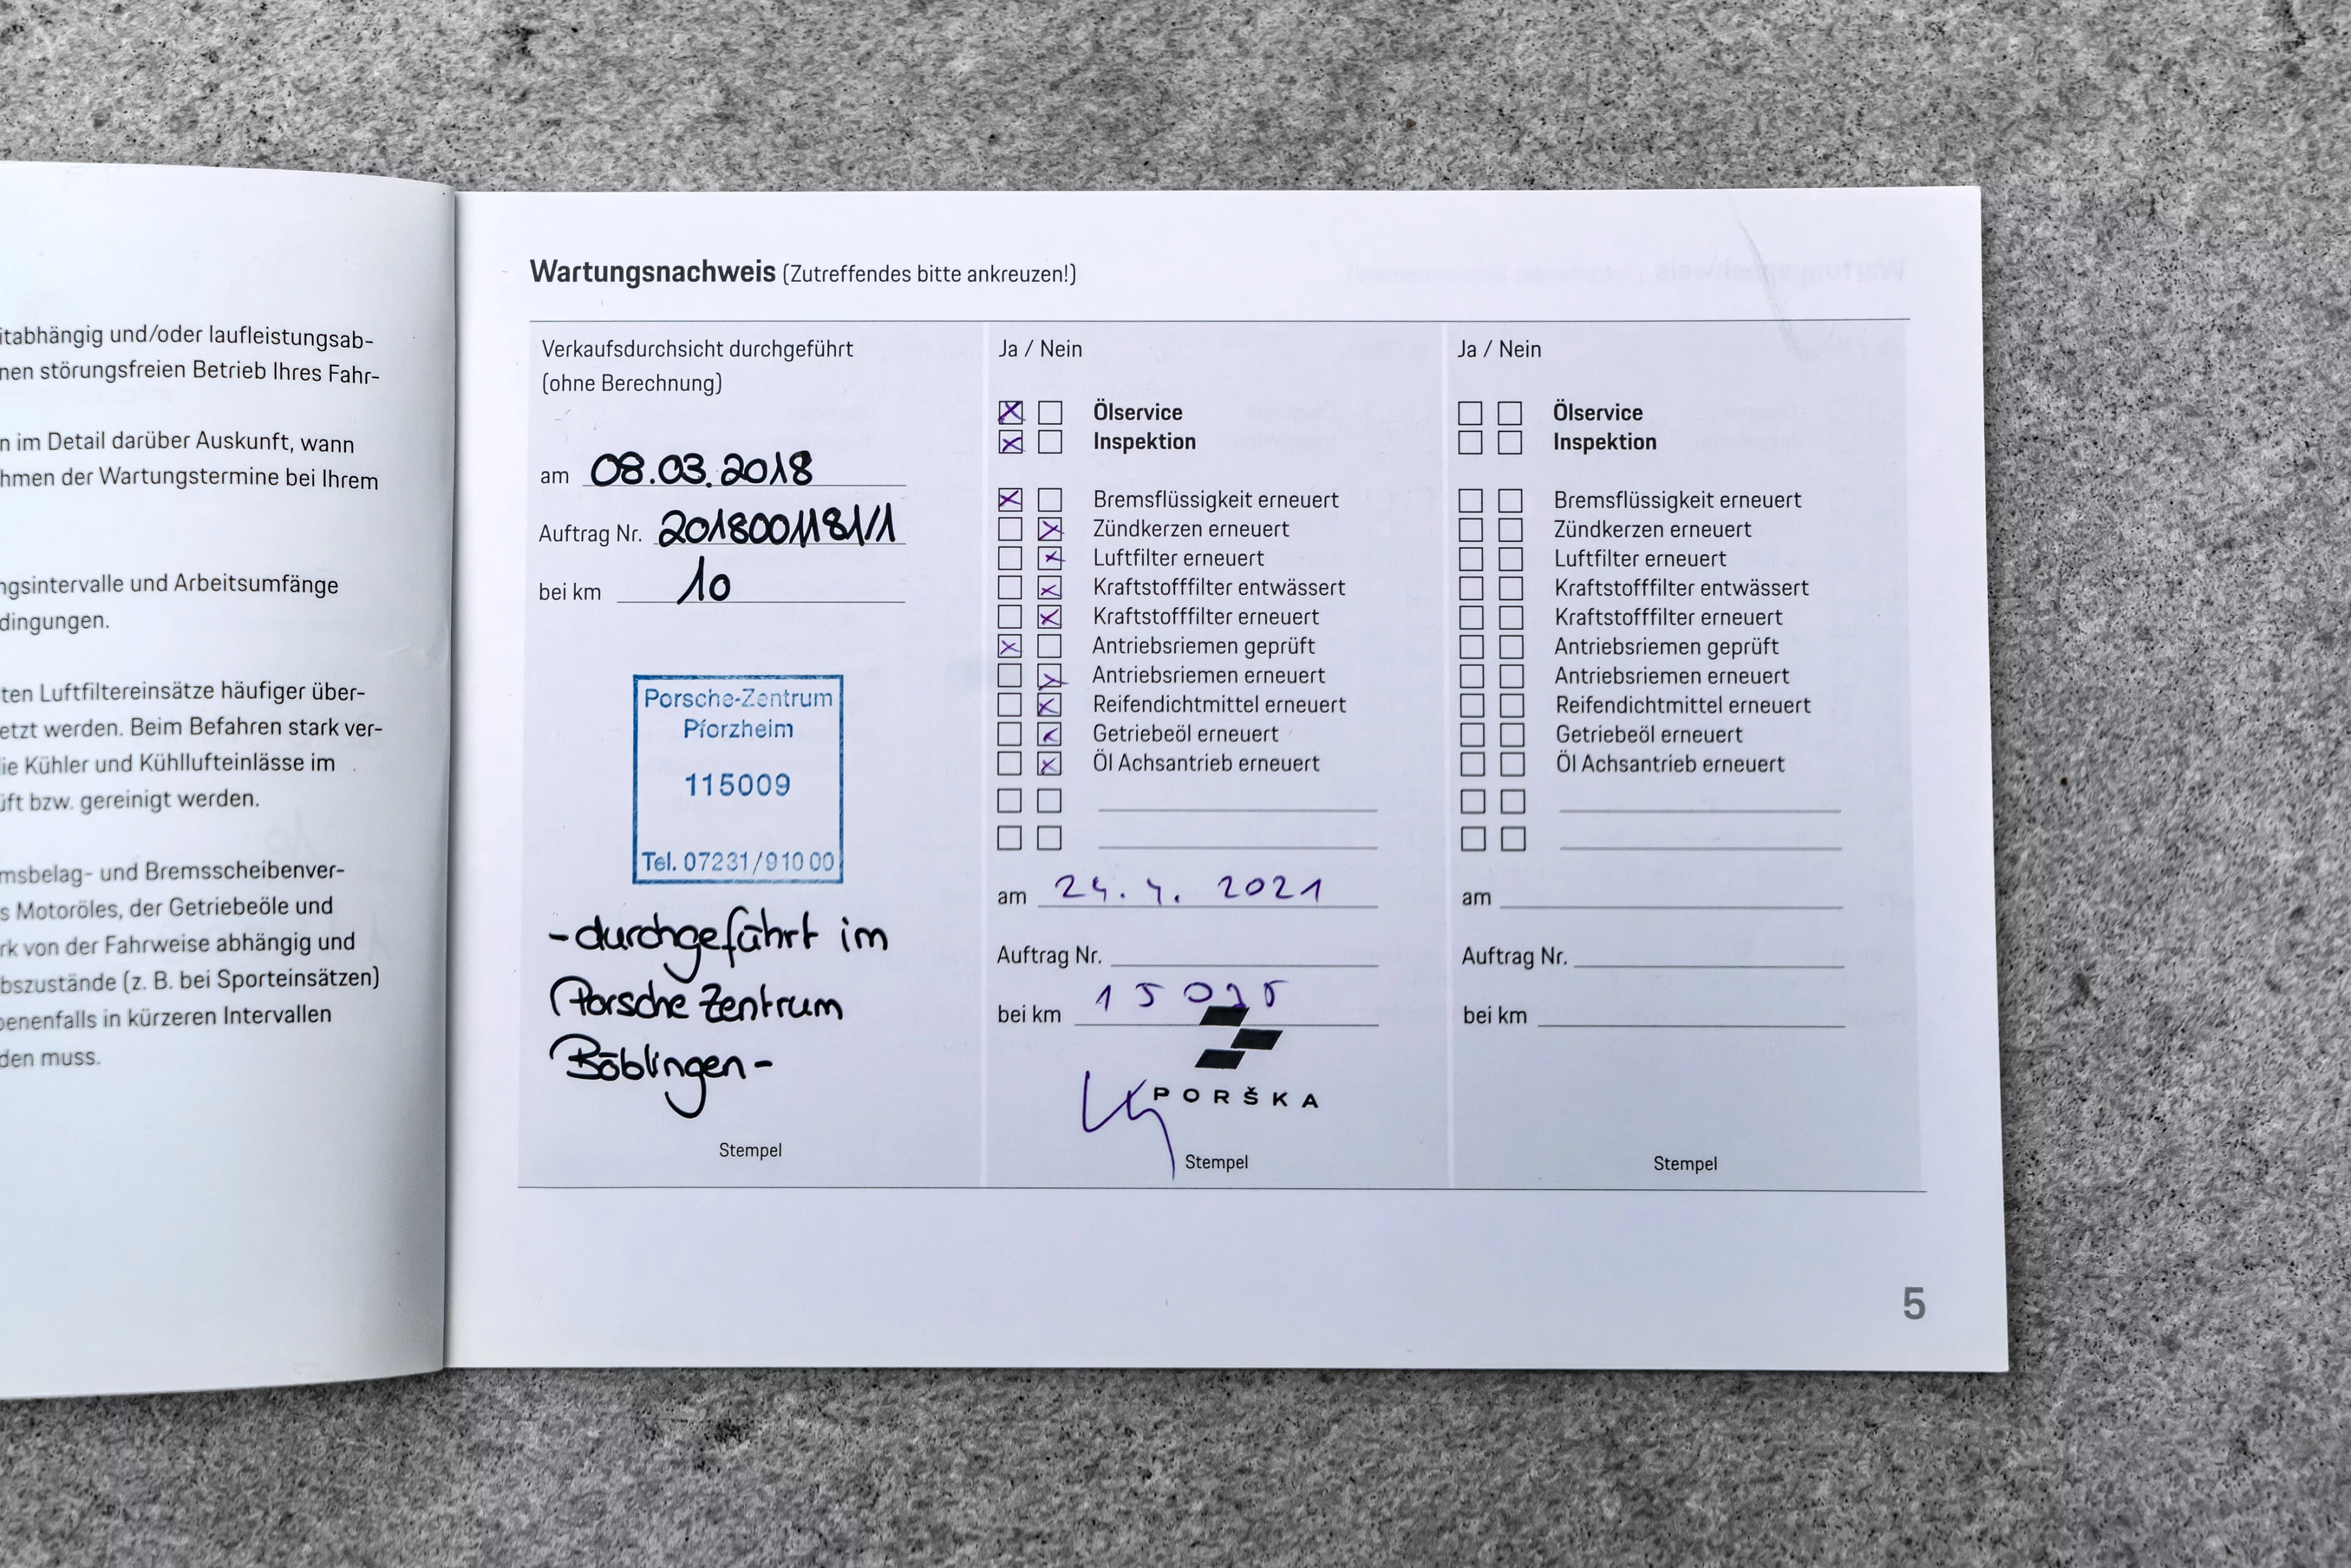 itabhängig und/oder laufleistungsab-
nen störungsfreien Betrieb Ihres Fahr-
n im Detail darüber Auskunft, wann
hmen der Wartungstermine bei Ihrem
ngsintervalle und Arbeitsumfänge
dingungen.
ten Luftfiltereinsätze häufiger über-
etzt werden. Beim Befahren stark ver-
ie Kühler und Kühllufteinlässe im
üft bzw. gereinigt werden.
msbelag- und Bremsscheibenver-
s Motoröles, der Getriebeöle und
rk von der Fahrweise abhängig und
bszustände (z. B. bei Sporteinsätzen)
benenfalls in kürzeren Intervallen
den muss.
Wartungsnachweis (Zutreffendes bitte ankreuzen!)
Verkaufsdurchsicht durchgeführt
(ohne Berechnung)
am 08.03.2018
Auftrag Nr. 2018001181/1
bei km 10
Porsche-Zentrum
Pforzheim
115009
Tel. 07231/910 00
-durchgeführt im
Porsche Zentrum
Böblingen-
Stempel
Ja / Nein
Ölservice
Inspektion
Bremsflüssigkeit erneuert
Zündkerzen erneuert
Luftfilter erneuert
Kraftstofffilter entwässert
Kraftstofffilter erneuert
Antriebsriemen geprüft
Antriebsriemen erneuert
Reifendichtmittel erneuert
Getriebeöl erneuert
Öl Achsantrieb erneuert
am 24. 4. 2021
Auftrag Nr.
bei km
PORŠKA
Stempel
Ja / Nein
Ölservice
Inspektion
Bremsflüssigkeit erneuert
Zündkerzen erneuert
Luftfilter erneuert
Kraftstofffilter entwässert
Kraftstofffilter erneuert
Antriebsriemen geprüft
Antriebsriemen erneuert
Reifendichtmittel erneuert
Getriebeöl erneuert
Öl Achsantrieb erneuert
am
Auftrag Nr.
bei km
Stempel
5